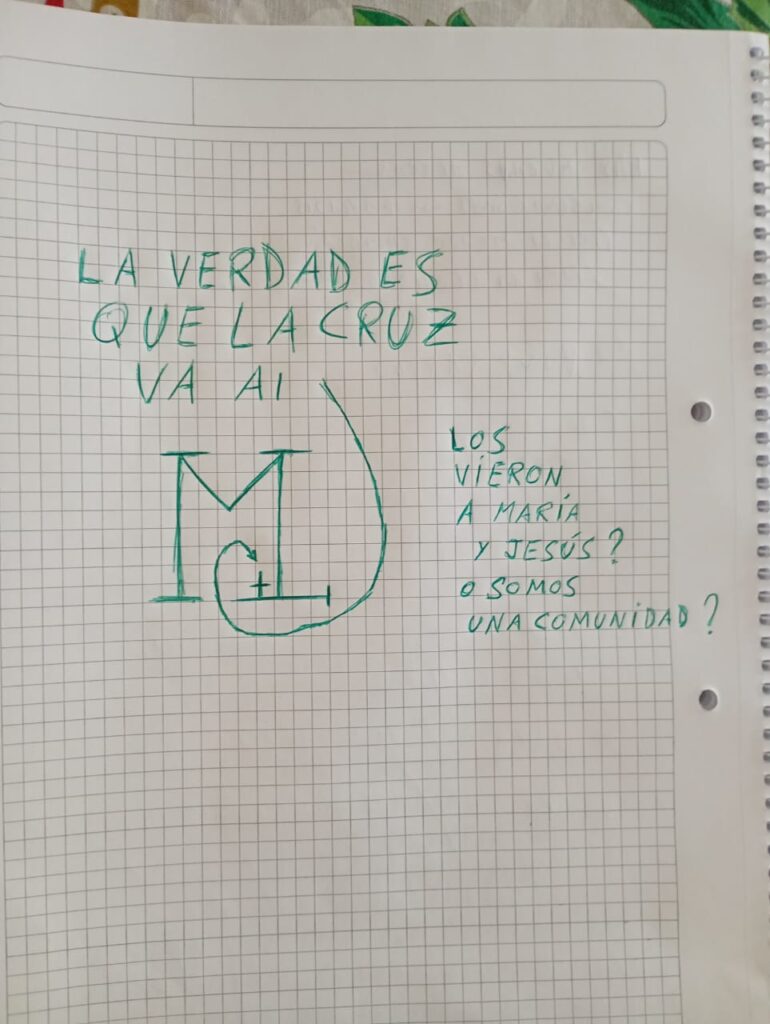 LA VERDAD ES
QUE LA CRUZ
VA AI
M
LOS
VIERON
A MARÍA
Y JESÚS?
O SOMOS
UNA COMUNIDAD?